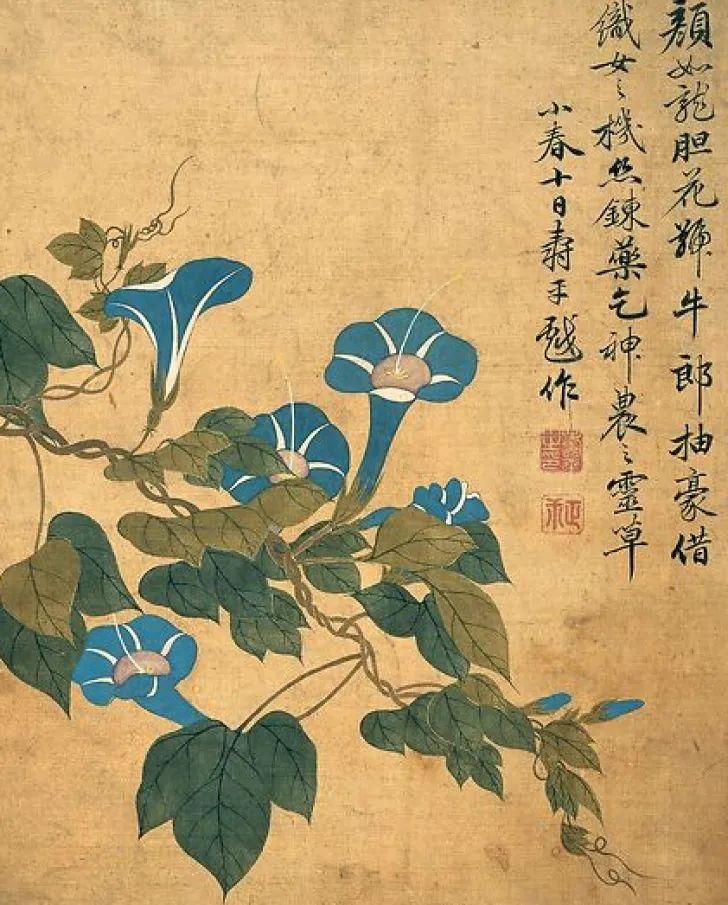 顏如龍胆花號牛郎抽豪借
織女之機丝鍊藥乞神農之靈草
小春十日壽平戲作